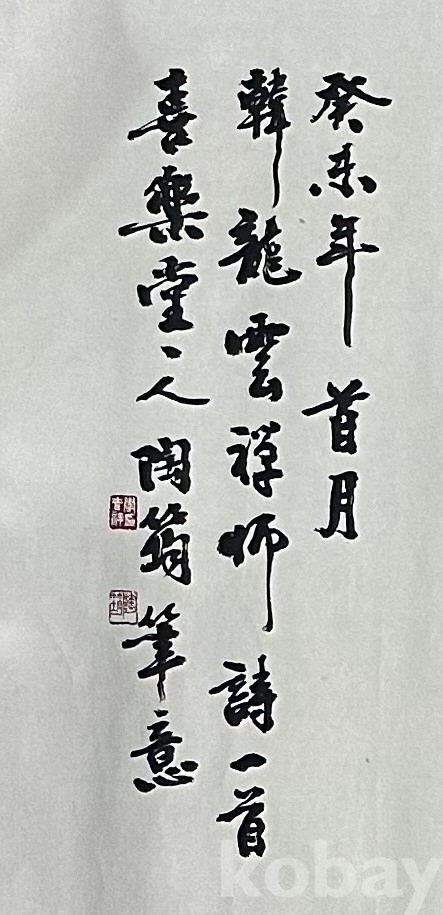 癸未年首月
韓龍雲禪师詩一首
喜樂堂一人陶篛筆意
kobay